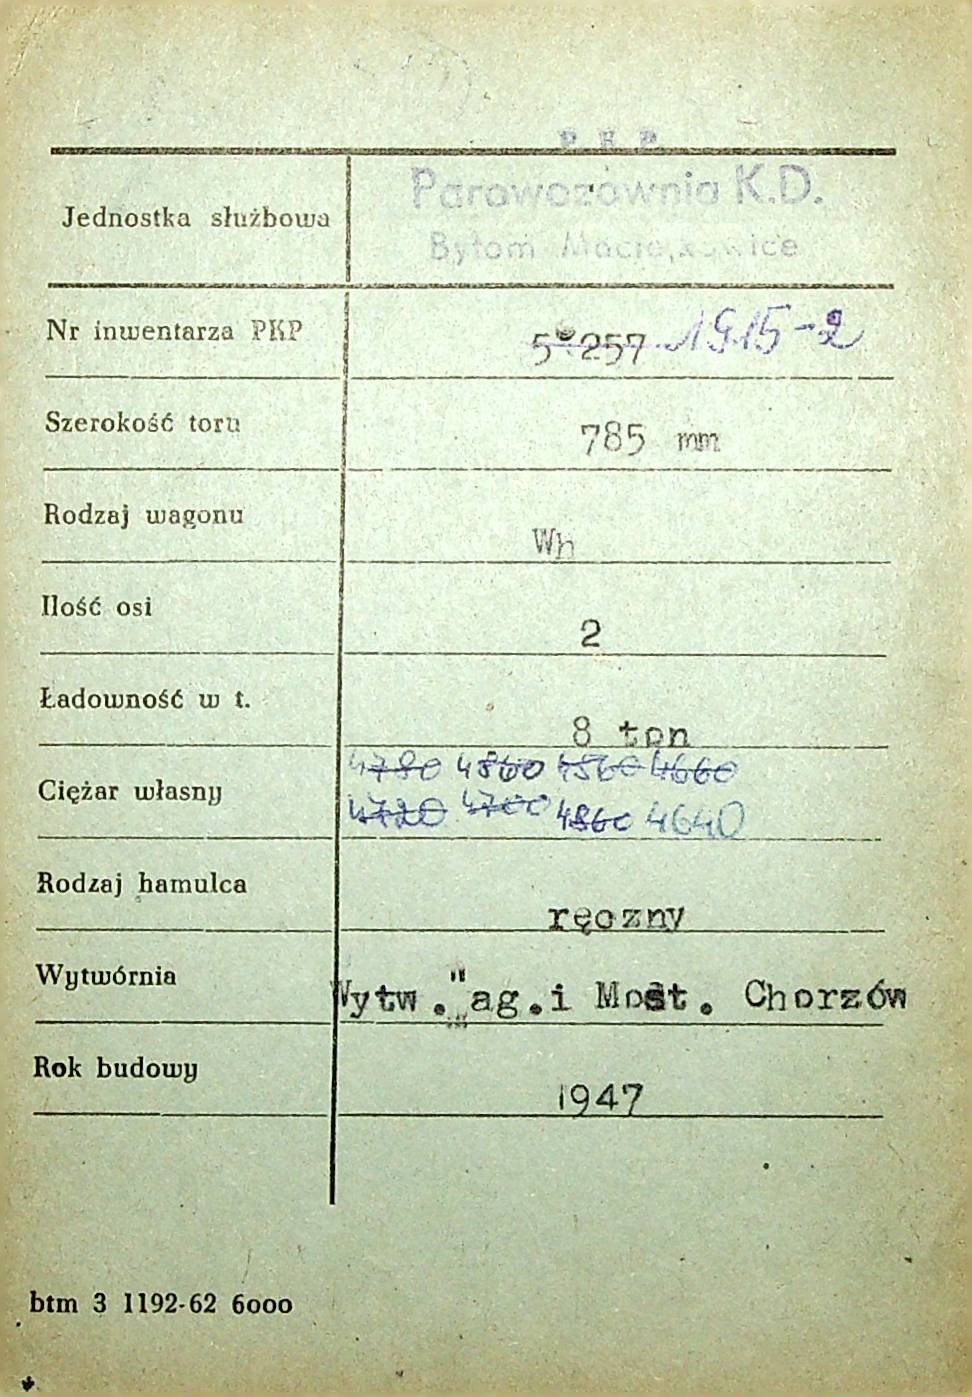 P K P
Parowozownia K.D.
Jednostka służbowa
Bytom Maciejkowice
Nr inwentarza PKP 257 1915-2
Szerokość toru 785 mm
Rodzaj wagonu Wh
Ilość osi 2
Ładowność w t. 8 ton
4780 4860 4560 4660
Ciężar własny
4720 4700 4860 4640
Rodzaj hamulca ręczny
Wytwórnia Wytw. Wag.i Most. Chorzów
Rok budowy 1947
btm 3 1192-62 6000